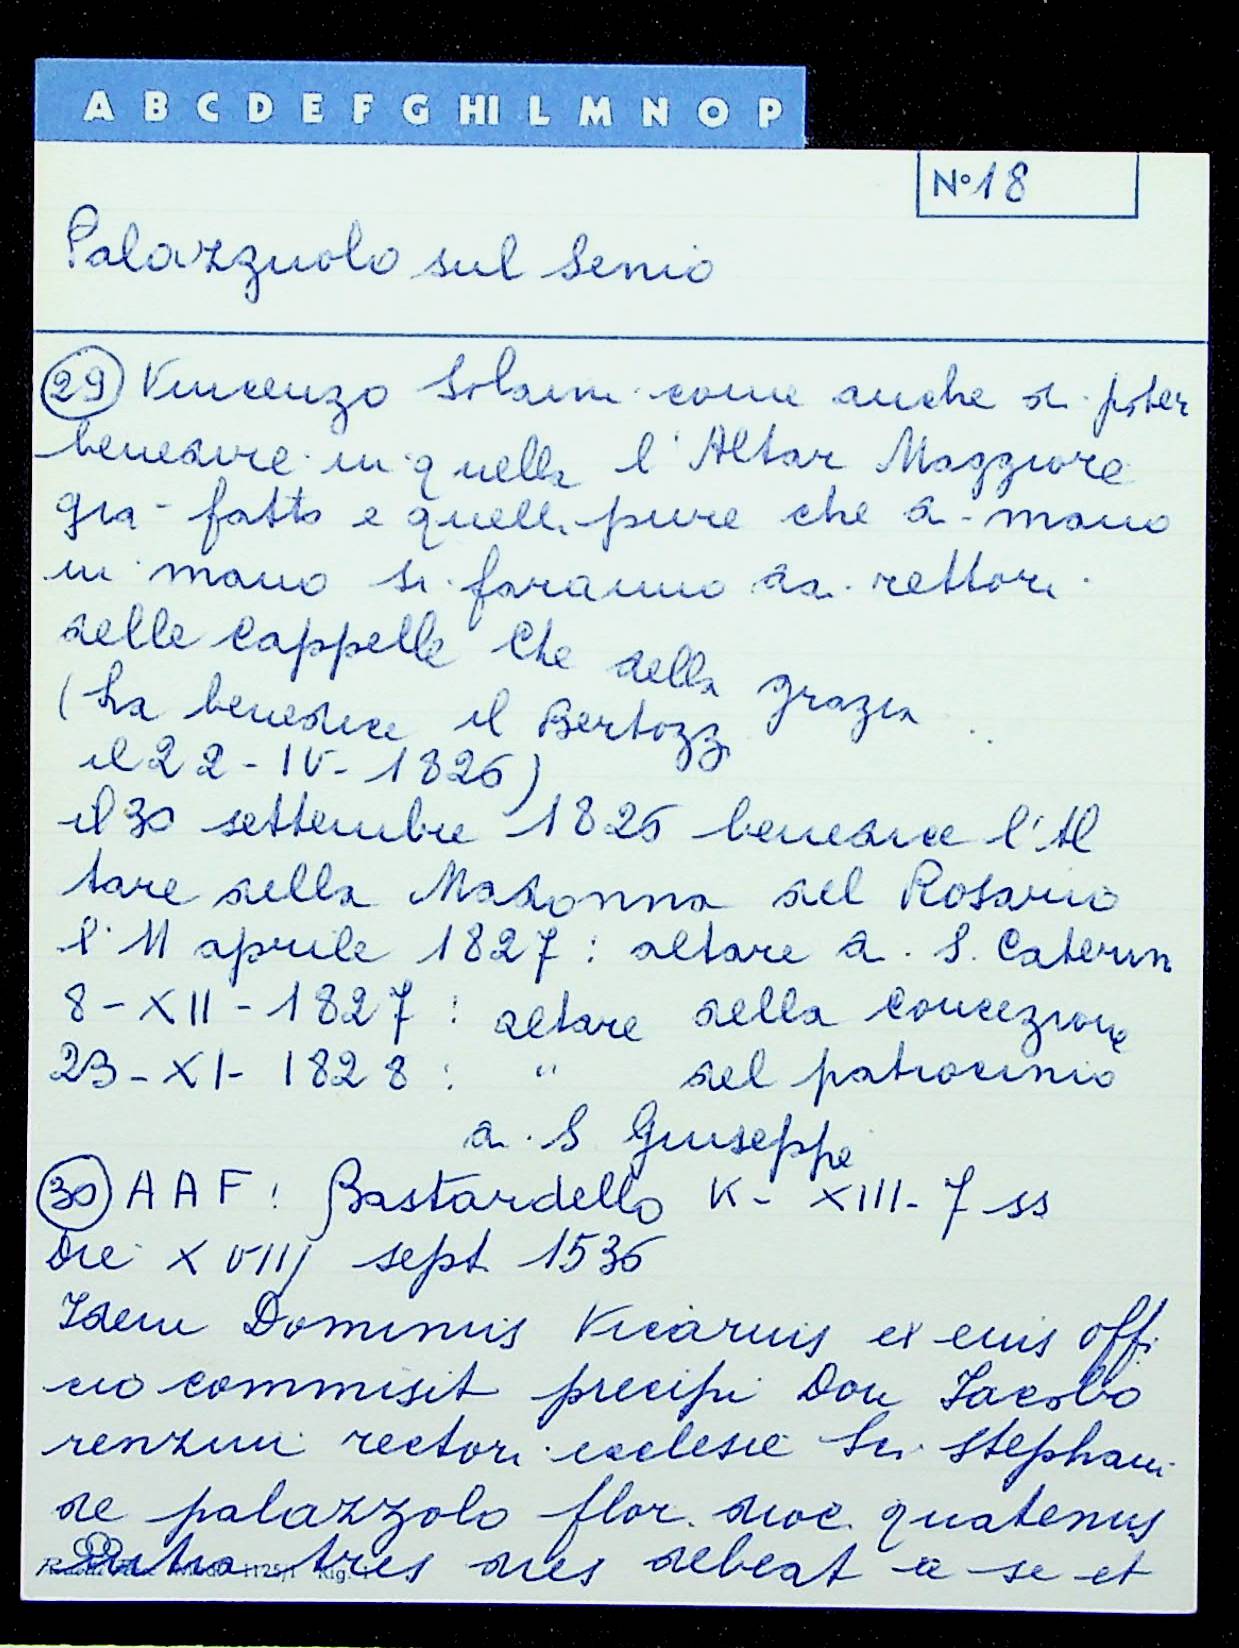 A B C D E F G HI L M N O P
N° 18
Palazzuolo sul Senio
29 Vincenzo Solaini come anche di poter
benedire in quella l'Altar Maggiore
già fatto e quelli pure che a mano
in mano si faranno da rettori
delle cappelle che della grazia ..
(La benedice il Bertozzi
il 22-IV-1826)
il 30 settembre 1826 benedice l'Al
tare della Madonna del Rosario
l'11 aprile 1827: altare di S. Caterin
8-XII-1827: altare della Concezione
23-XI-1828: " del patrocinio
di S Giuseppe
30 AAF: Bastardello K-XIII-7 ss
Die XVIIJ sept 1536
Idem Dominus Vicarius ex eius offi
cio commisit precipi Don Jacobo
renzini rectori ecclesie Sci Stephani
de palazzolo flor. dioc. quatenus
intra tres dies debeat a se et